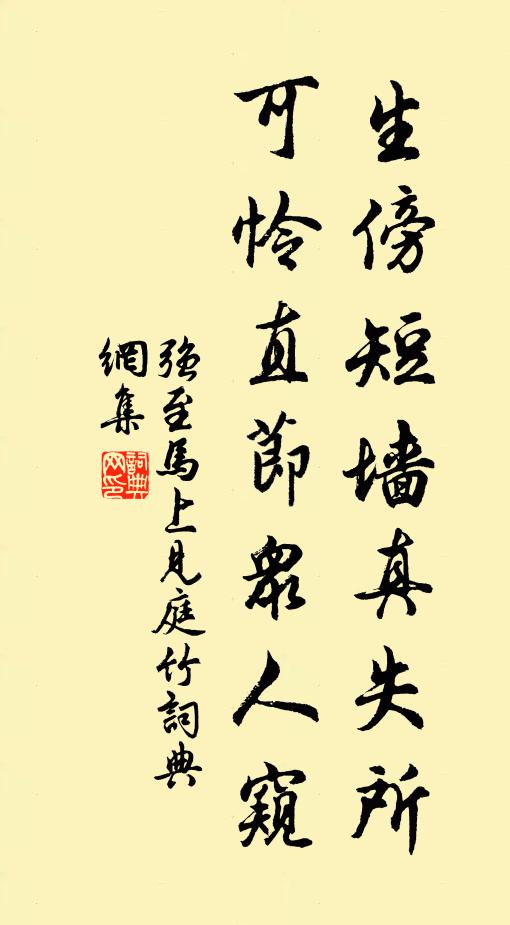 生傍短墙真失所
可怜直節衆人窺
強至馬上見庭竹詞典
網集
詞典
网印